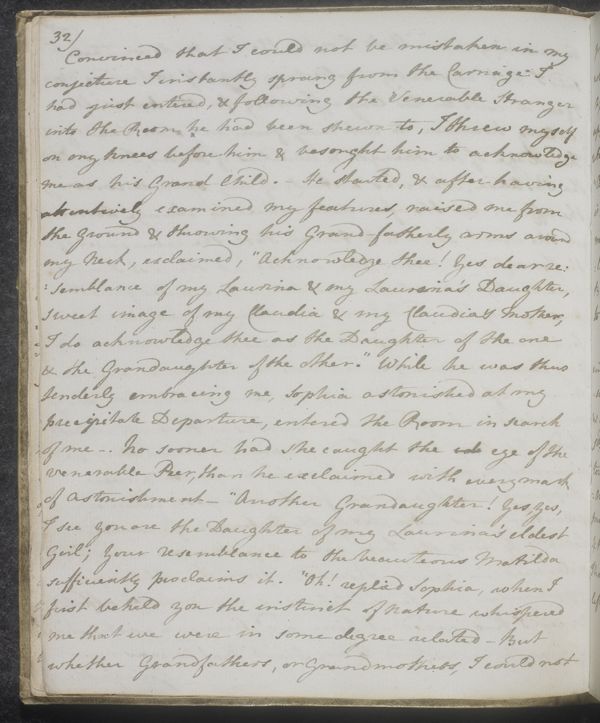 32/
Convinced that I could not be mistaken in my
conjecture I instantly sprang from the Carriage I
had just entered, & following the Venerable Stranger
into the Room he had been shewn to, I threw myself
on my knees before him & besought him to acknowledge
me as his Grand Child. – He started, & after having
attentively examined my features, raised me from
the Ground & throwing his Grand-fatherly arms around
my Neck, exclaimed, "Acknowledge thee! Yes dear re:
:semblance of my Laurina & my Laurina's Daughter,
sweet image of my Claudia & my Claudia's Mother,
I do acknowledge thee as the Daughter of the one
& the Grandaughter of the other." While he was thus
tenderly embracing me, Sophia astonished at my
precipitate Departure, entered the Room in search
of me – . No sooner had she caught the eye of the
venerable Peer, than he exclaimed with every mark
of Astonishment – "Another Grandaughter! Yes, yes,
I see you are the Daughter of my Laurina's eldest
Girl; Your resemblance to the beauteous Matilda
sufficiently proclaims it. "Oh! replied Sophia, when I
first beheld you the instinct of Nature whispered
me that we were in some degree related – But
whether Grandfathers, or Grandmothers, I could not